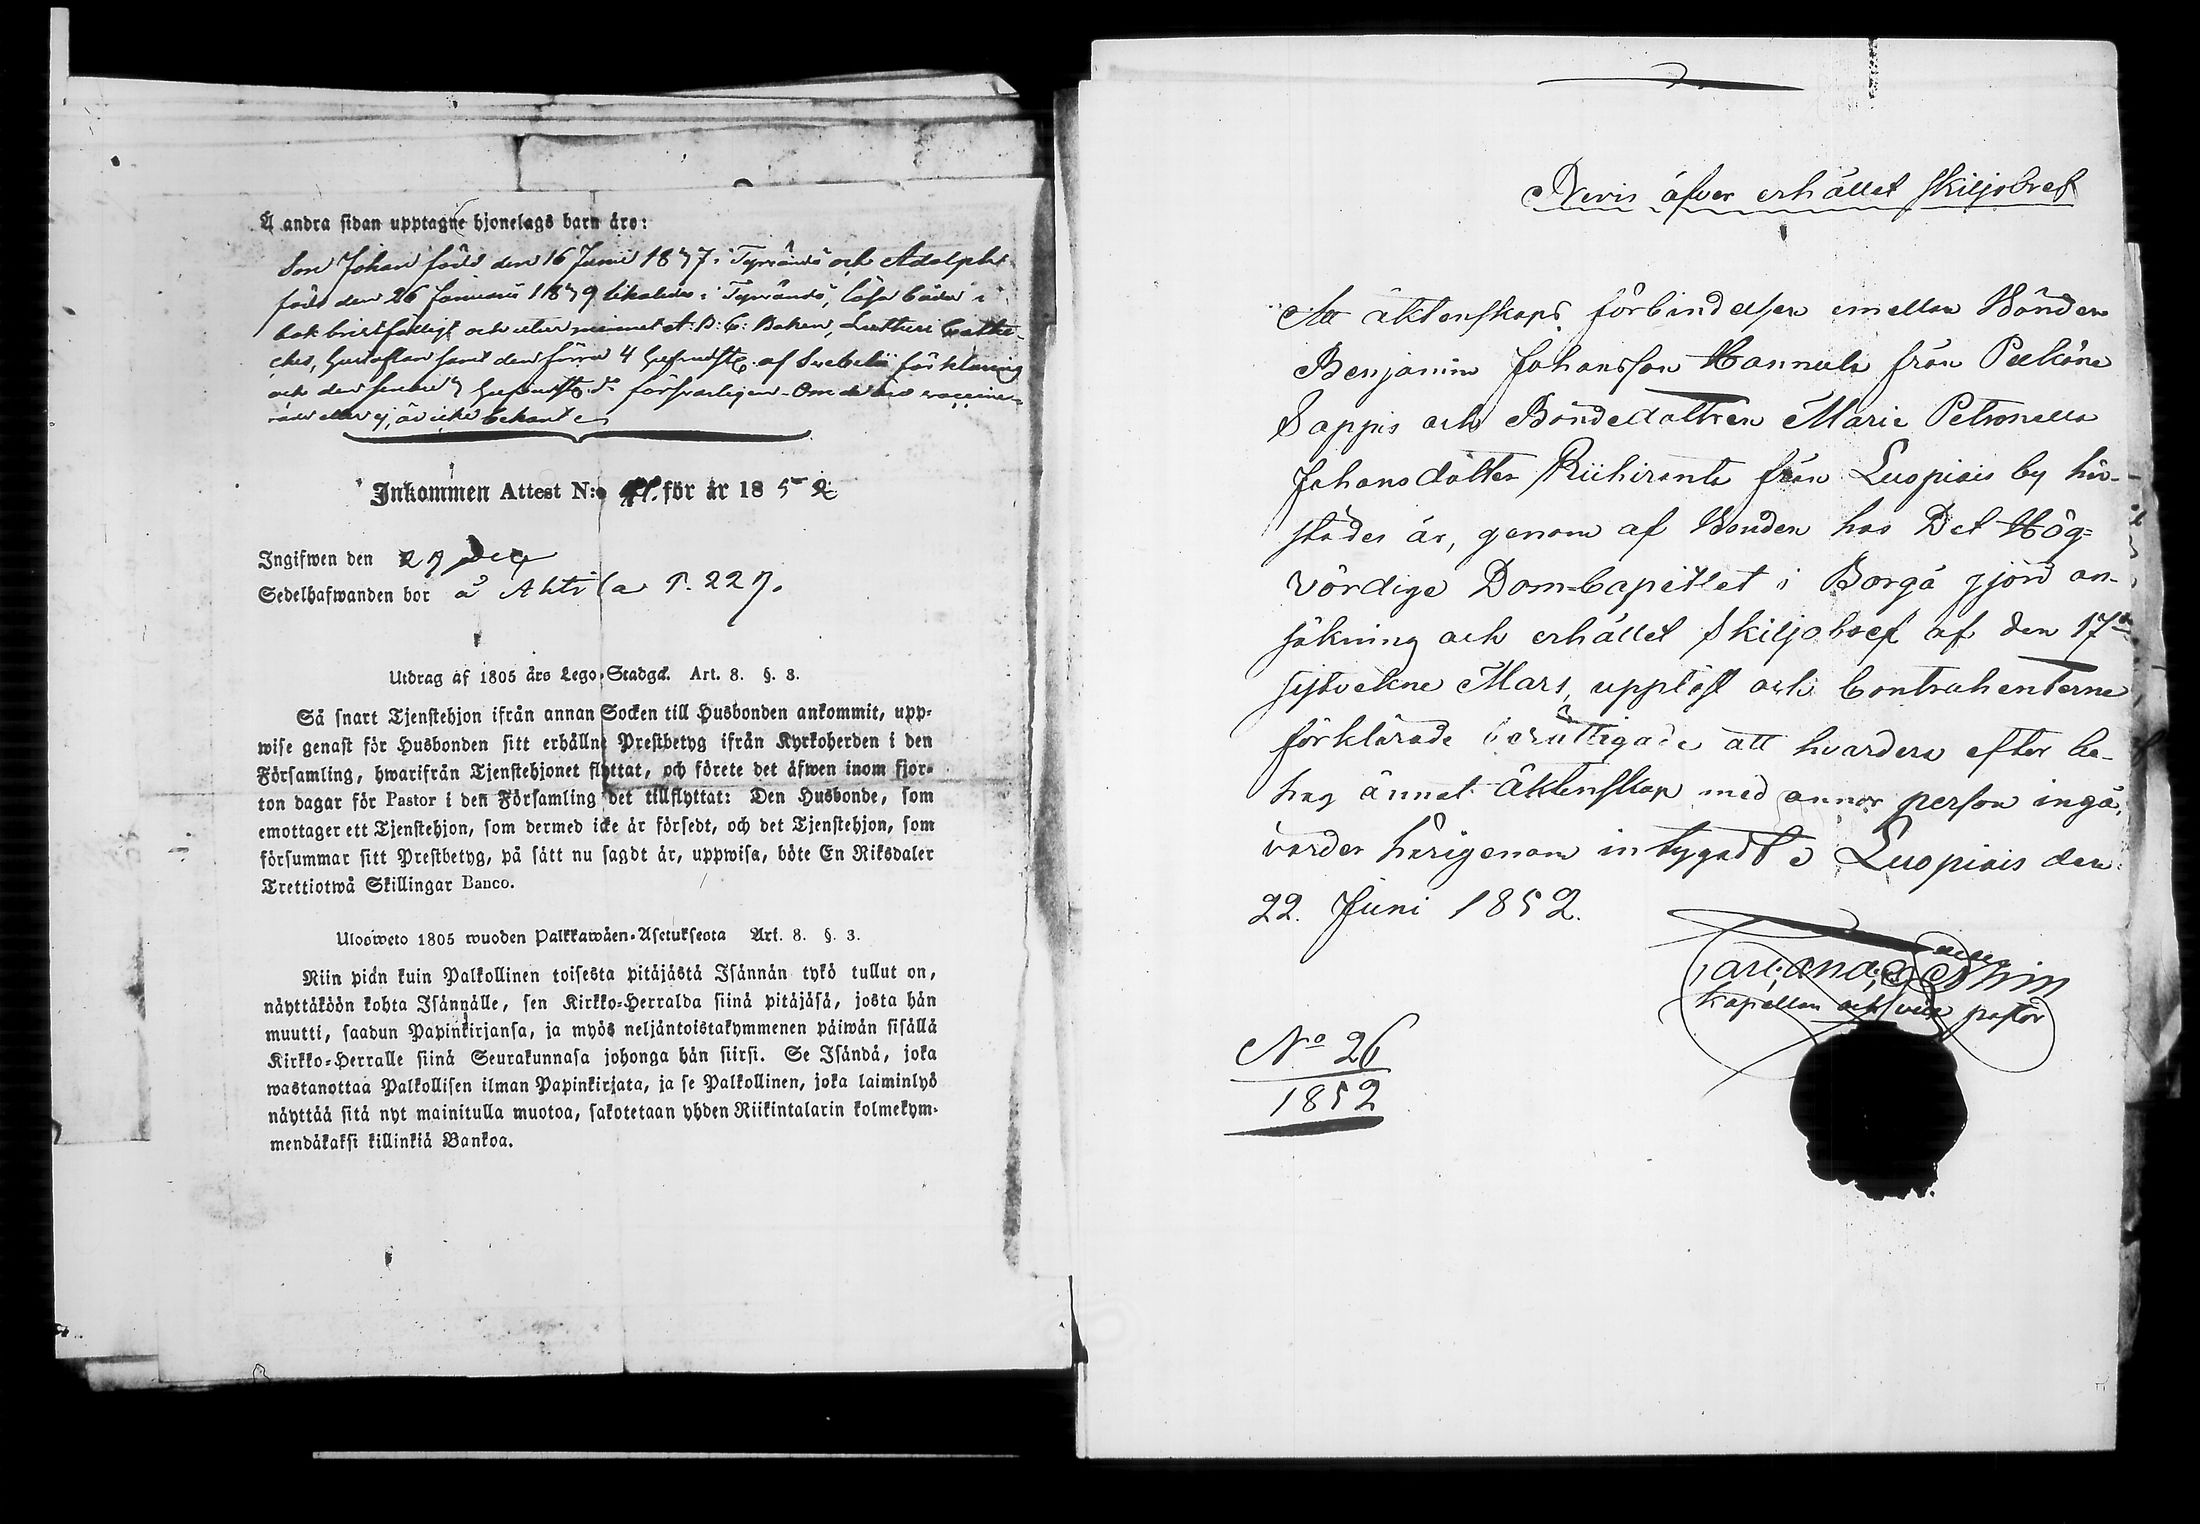 Å andra sidan upptagne hjonelags barn äro:
Son Johan född den 16 Junii 1837 i Tyrvändö och Adolph
född den 26 Januarii 1839 likaledes i Tyrvändö, läsa båda i
bok bristfälligt och utur minnet A.B.C. Boken, Lutheri Cathe-
ches, Hustaflan samt den förra 4 Hufvudst. af Svebelii förklaring
och den senare 3 Hufvudst. d:o försvarligen. Om de äro vaccine-
rade eller ej, är icke bekant
Inkommen Attest N:o för år 1852
Ingifwen den 29 Dec
Sedelhafwanden bor å Ahtila P. 227.
Utdrag af 1805 års Lego-Stadga. Art. 8. §. 3.
Så snart Tjenstehjon ifrån annan Socken till Husbonden ankommit, upp-
wise genast för Husbonden sitt erhållne Prestbetyg ifrån Kyrkoherden i den
Församling, hwarifrån Tjenstehjonet flyttat, och förete det äfwen inom fjor-
ton dagar för Pastor i den Församling det tillflyttat: Den Husbonde, som
emottager ett Tjenstehjon, som dermed icke är försedt, och det Tjenstehjon, som
försummar sitt Prestbetyg, på sätt nu sagdt är, uppwisa, böte En Riksdaler
Trettiotwå Skillingar Banco.
Ulosweto 1805 wuoden Palkkawäen-Asetuksesta Art. 8. §. 3.
Niin pian kuin Palkollinen toisesta pitäjästä Isännän tykö tullut on,
näyttäköön kohta Isännälle, sen Kirkko-Herralda siinä pitäjäsä, josta hän
muutti, saadun Papinkirjansa, ja myös neljäntoistakymmenen päiwän sisällä
Kirkko-Herralle siinä Seurakunnasa johonga hän siirsi. Se Isändä, joka
wastanottaa Palkollisen ilman Papinkirjata, ja se Palkollinen, joka laiminlyö
näyttää sitä nyt mainitulla muotoa, sakotetaan yhden Riikintalarin kolmekym-
mendäkaksi killinkiä Bankoa.
Bevis öfver erhållet Skiljobref
Att äktenskaps förbindelsen emellan Bonden
Benjamin Johansson Hannula från Pälkäne
Sappis och Bondedottren Maria Petronella
Johansdotter Riihiranta från Luopiois by här-
städes är, genom af Bonden hos Det Hög-
vördige Dom-Capitlet i Borgå gjord an-
sökning och erhållet Skiljobref af den 17de
sistvekne Mars, upplöst och Contrahenterne
förklarade berättigade att hvardera efter be-
hag annat Äktenskap med annor person ingå,
varder härigenom intygadt; Luopiois den
22. Juni 1852.
kapellan och vice pastor
No 26
1852